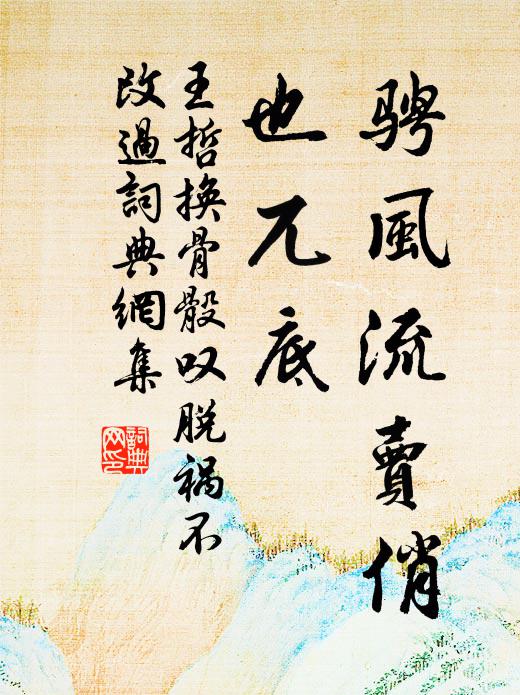 骋風流賣俏
也兀底
王哲換骨骰叹脱禍不
改過詞典網集
詞典
网印